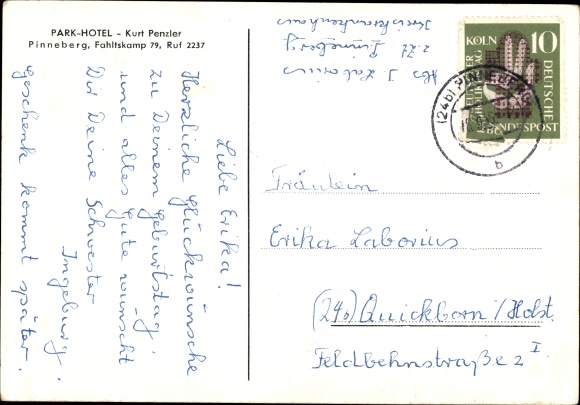 PARK-HOTEL - Kurt Penzler
Pinneberg, Fahltskamp 79, Ruf 2237
Liebe Erika!
Herzliche Glückwünsche
zu Deinem Geburtstag,
und alles Gute wünscht
Dir Deine Schwester
Ingeburg.
Geschenk kommt später.
Abs I Laborius
z. Zt Pinneberg
Kreiskrankenhaus
KÖLN 10
DEUTSCHE
BUNDESPOST
(24b) PINNEBERG
b
Fräulein
Erika Laborius
(24b) Quickborn / Holst.
Feldbehnstraße 2 I